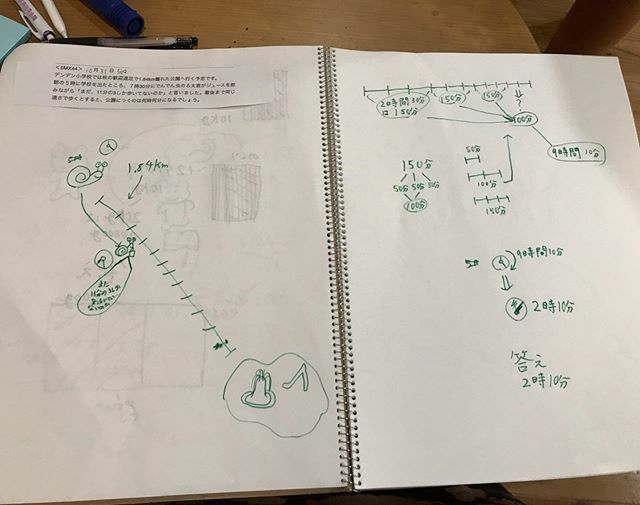 <SMX44>
10月31日
デンデン小学校では秋の歓迎遠足で1.84km離れた公園へ行く予定です。
朝の5時に学校を出たところ、7時30分にでんでん虫のろ太君がジュースを飲
みながら「まだ、11分の3しか歩いてないのか」と言いました。最後まで同じ
速さで歩くとすると、公園につくのは何時何分になるでしょう。
1.84km
まだ
2時間30分
は150分
150分
150分
?
100分
9時間10分
150分
50分
50分
50分
100分
50分
100分
150分
9時間10分
2時10分
答え
2時10分